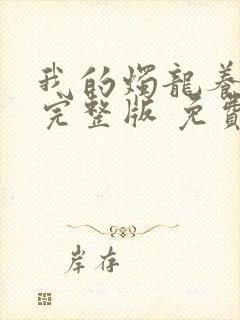 我的燭龍養
完整版 免費
岸存